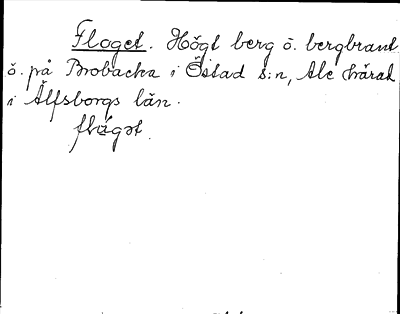 Floget. Högt berg o. bergbrant
ö. på Brobacka i Östad s:n, Ale härad
i Älfsborgs län.
flɷ́gət.